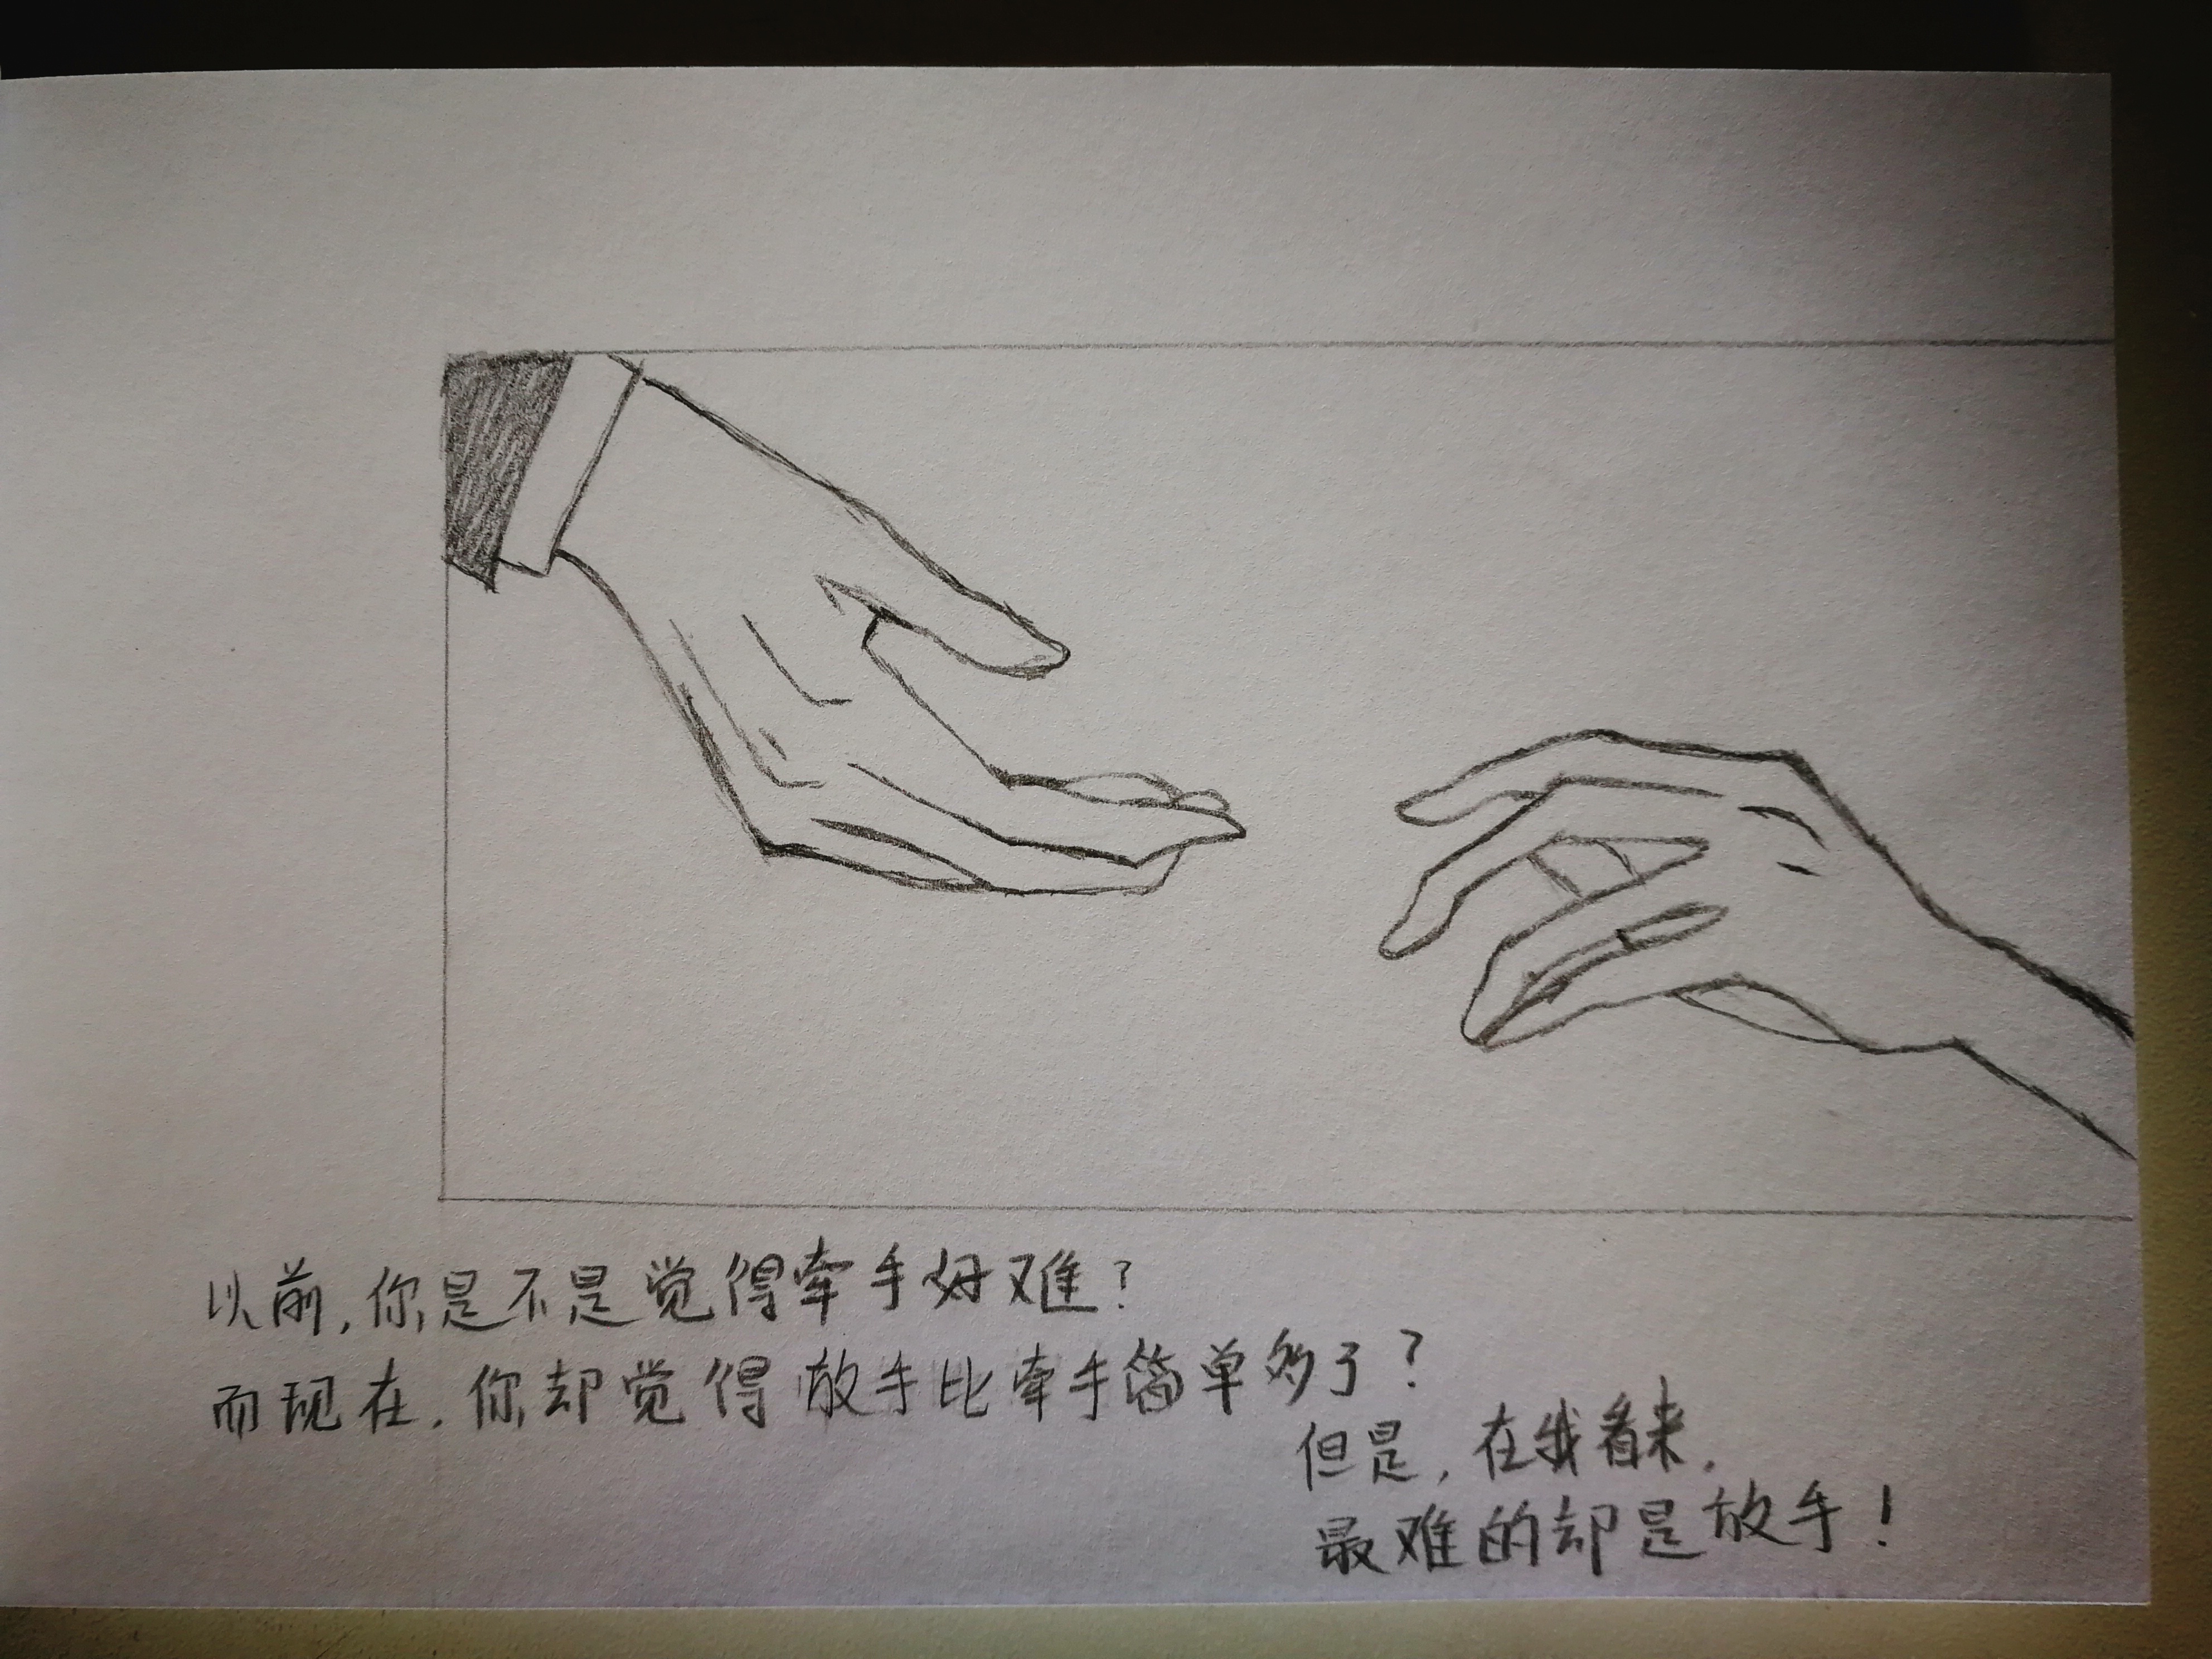 以前,你是不是觉得牵手好难?
而现在,你却觉得放手比牵手简单多了?
但是,在我看来,
最难的却是放手!